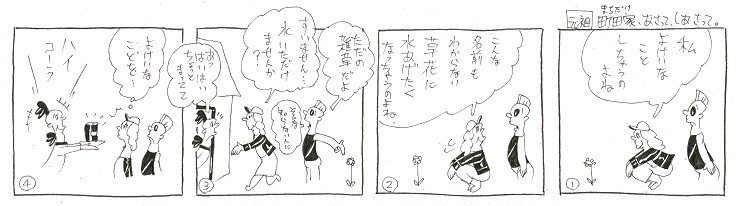 元祖 町田家、あさって、しあさって。
まちだけ
私
よけいな
こと
しちゃうの
よね
①
こんな
名前も
わからない
草花に
水あげたく
なっちゃうのよね
②
ただの
雑草だよ
すいません…
水いただけ
ませんか?
あっ
はいはい
ちょっと
まってて
③
よけいな
ことを…
ハイ
コーラ
④